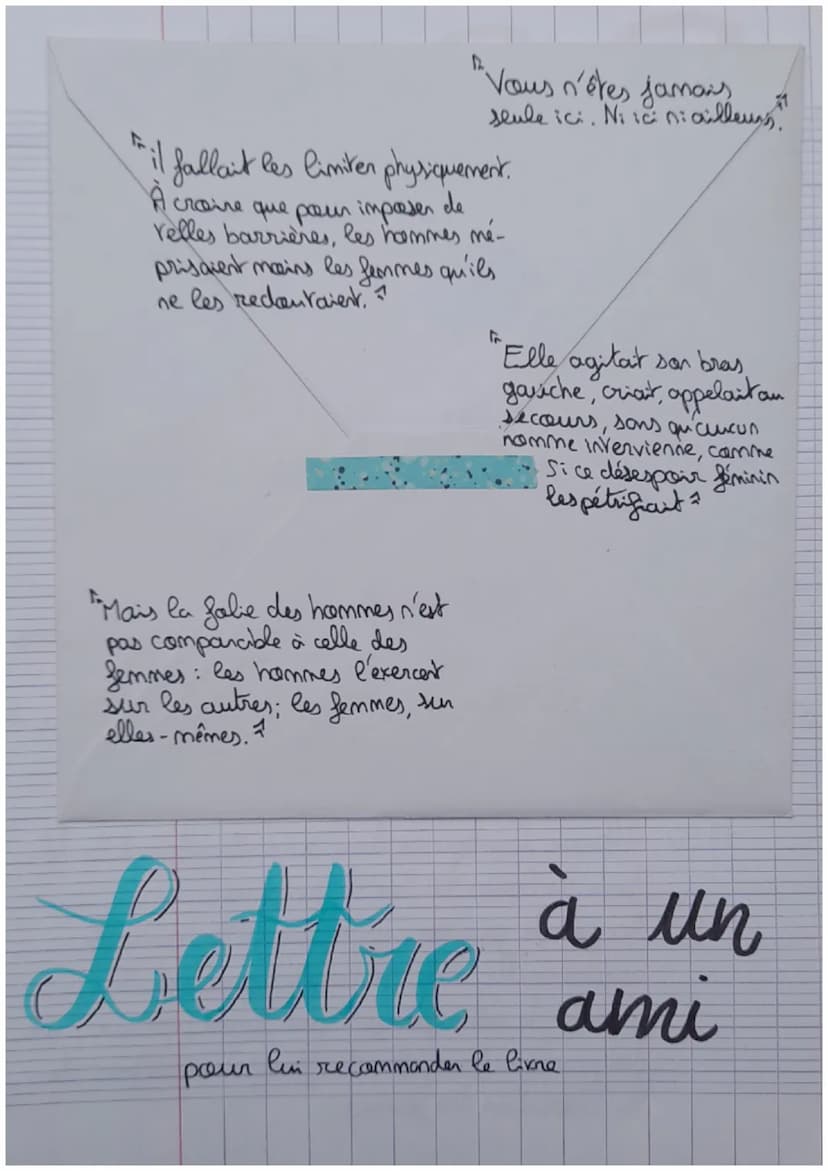 "Vous n'êtes jamais
seule ici. Ni ici ni ailleurs."
"il fallait les limiter physiquement.
À croire que pour imposer de
telles barrières, les hommes mé-
prisaient moins les femmes qu'ils
ne les redoutaient."
"Elle agitait son bras
gauche, criait, appelait au
secours, sans qu'aucun
homme intervienne, comme
si ce désespoir féminin
les pétrifiait"
"Mais la folie des hommes n'est
pas comparable à celle des
femmes : les hommes l'exercent
sur les autres ; les femmes, sur
elles-mêmes."
Lettre à un
ami
pour lui recommander le livre